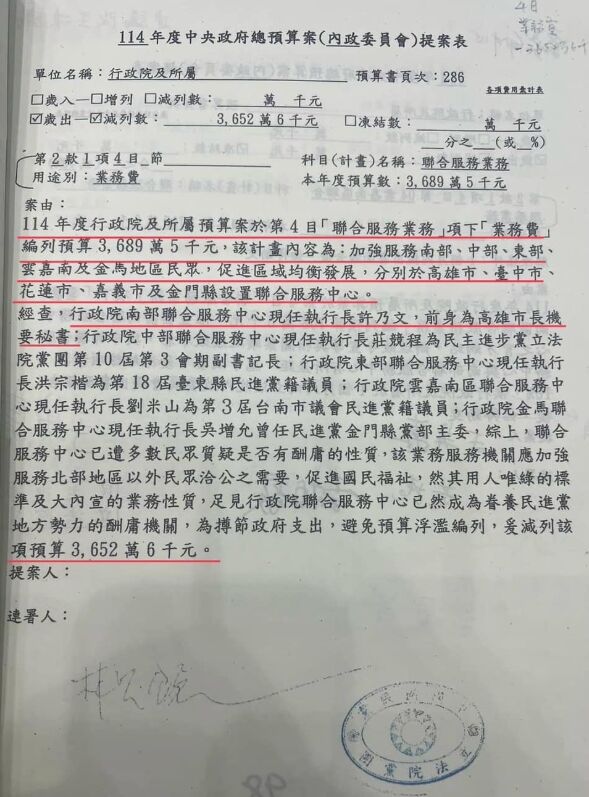 4目
業務費
114 年度中央政府總預算案(內政委員會)提案表
單位名稱:行政院及所屬 預算書頁次:286
各項費用彙計表
□歲入—□增列 □減列數: 萬 千元
☑歲出—☑減列數: 3,652 萬 6 千元 □凍結數: 萬 千元
分之 (或 %)
第 2 款 1 項 4 目 節 科目(計畫)名稱:聯合服務業務
用途別:業務費 本年度預算數:3,689 萬 5 千元
案由:
114 年度行政院及所屬預算案於第 4 目「聯合服務業務」項下「業務費」
編列預算 3,689 萬 5 千元,該計畫內容為;加強服務南部、中部、東部、
雲嘉南及金馬地區民眾,促進區域均衡發展,分別於高雄市、臺中市、
花蓮市、嘉義市及金門縣設置聯合服務中心。
經查,行政院南部聯合服務中心現任執行長許乃文,前身為高雄市長機
要秘書;行政院中部聯合服務中心現任執行長莊競程為民主進步黨立法
院黨團第 10 屆第 3 會期副書記長、行政院東部聯合服務中心現任執行
長洪宗楷為第 18 屆臺東縣民進黨籍議員;行政院雲嘉南區聯合服務中
心現任執行長劉米山為第 3 屆台南市議會民進黨籍議員;行政院金馬聯
合服務中心現任執行長吳增允曾任民進黨金門縣黨部主委,綜上,聯合
服務中心已遭多數民眾質疑是否有酬庸的性質,該業務服務機關應加強
服務北部地區以外民眾洽公之需要,促進國民福祉,然其用人唯綠的標
準及大內宣的業務性質,足見行政院聯合服務中心已然成為眷養民進黨
地方勢力的酬庸機關,為撙節政府支出,避免預算浮濫編列,爰減列該
項預算 3,652 萬 6 千元。
提案人:
連署人: